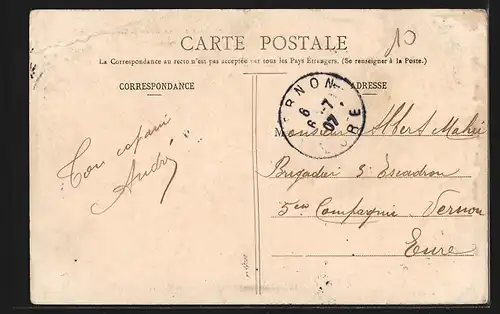 10
CARTE POSTALE
La Correspondance au recto n'est pas acceptée par tous les Pays Étrangers. (Se renseigner à la Poste.)
CORRESPONDANCE
ADRESSE
VERNON
6 -7
07
EURE
Ton copain
André
Monsieur Albert Mahé
Brigadier 5e Escadron
5em Compagnie Vernon
Eure